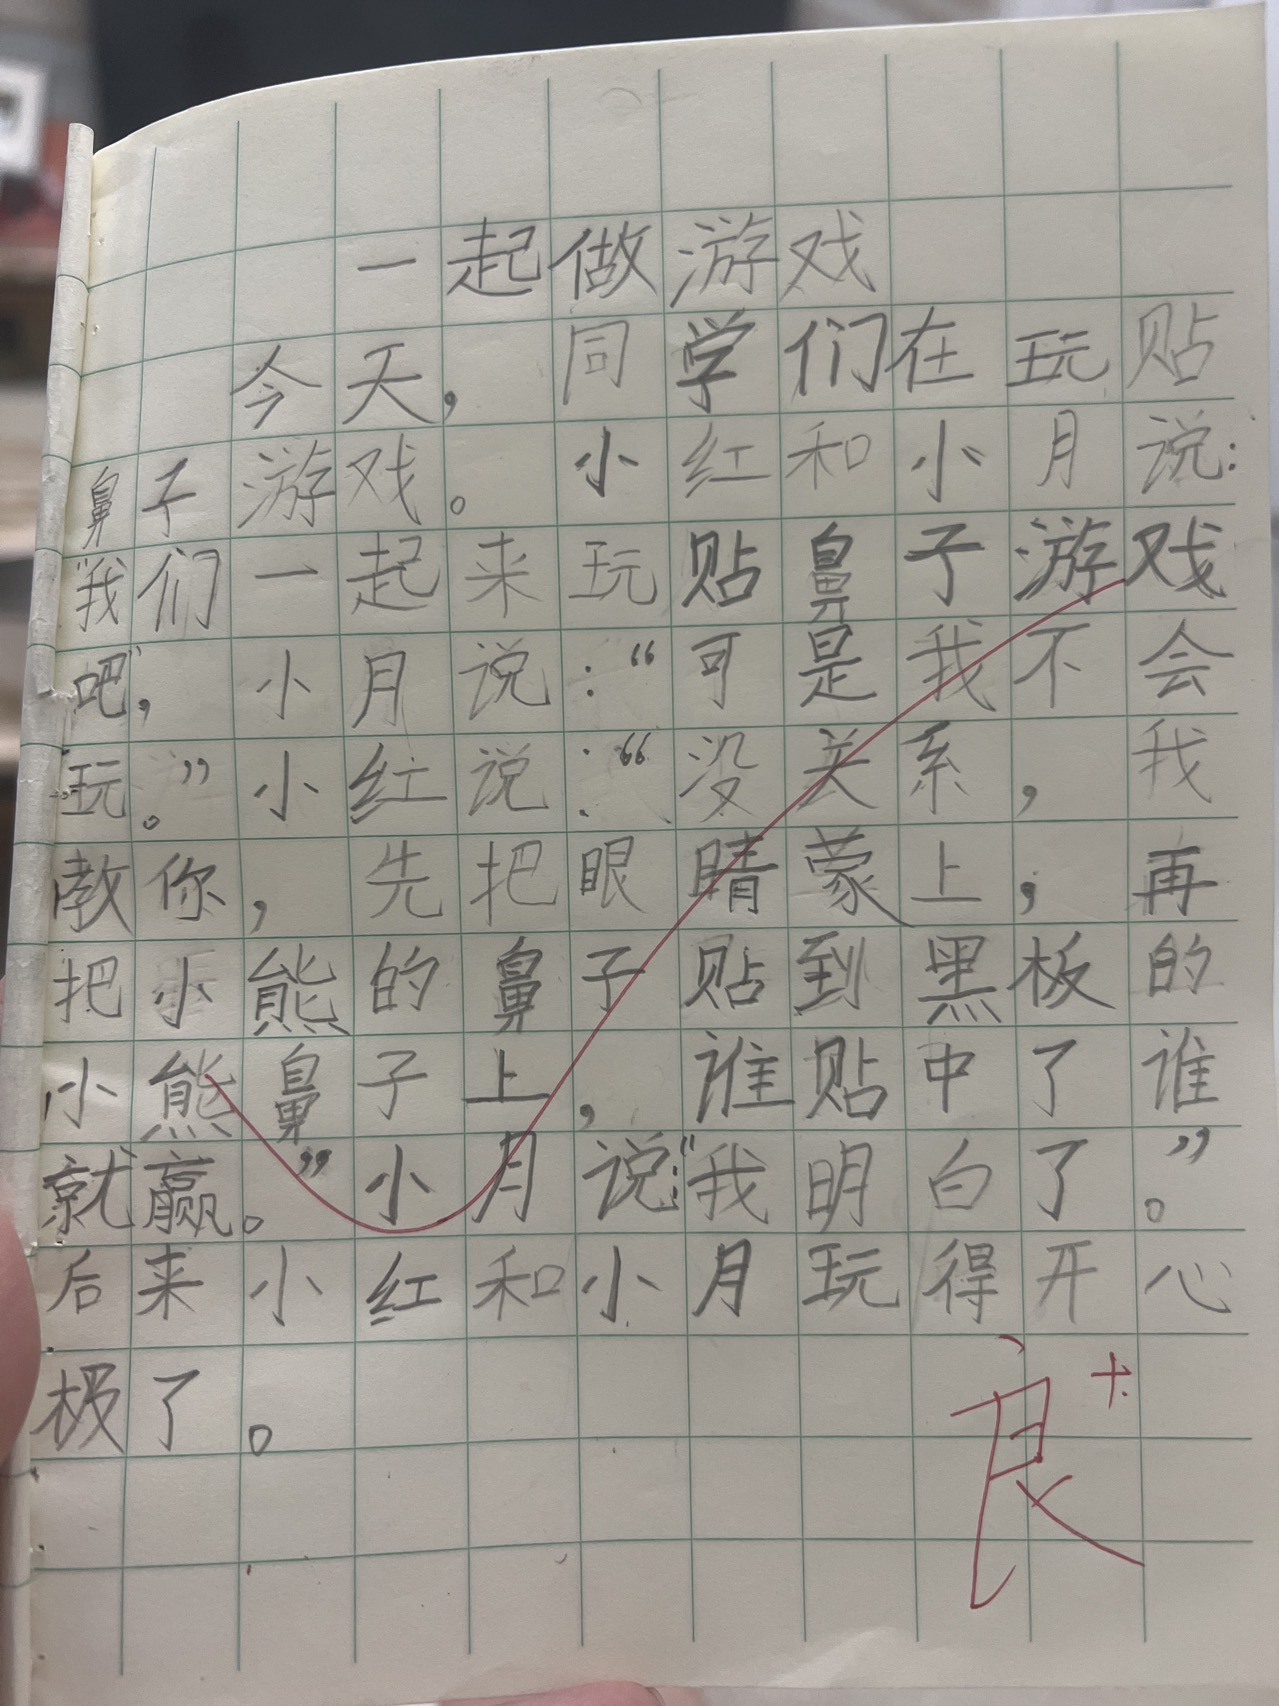 一起做游戏
今天，同学们在玩贴
鼻子游戏。小红和小月说：
“我们一起来玩贴鼻子游戏
吧”，小月说：“可是我不会
玩。”小红说：“没关系，我
教你，先把眼睛蒙上，再
把小熊的鼻子贴到黑板的
小熊鼻子上，谁贴中了谁
就赢。”小月说：“我明白了。”
后来小红和小月玩得开心
极了。
良+